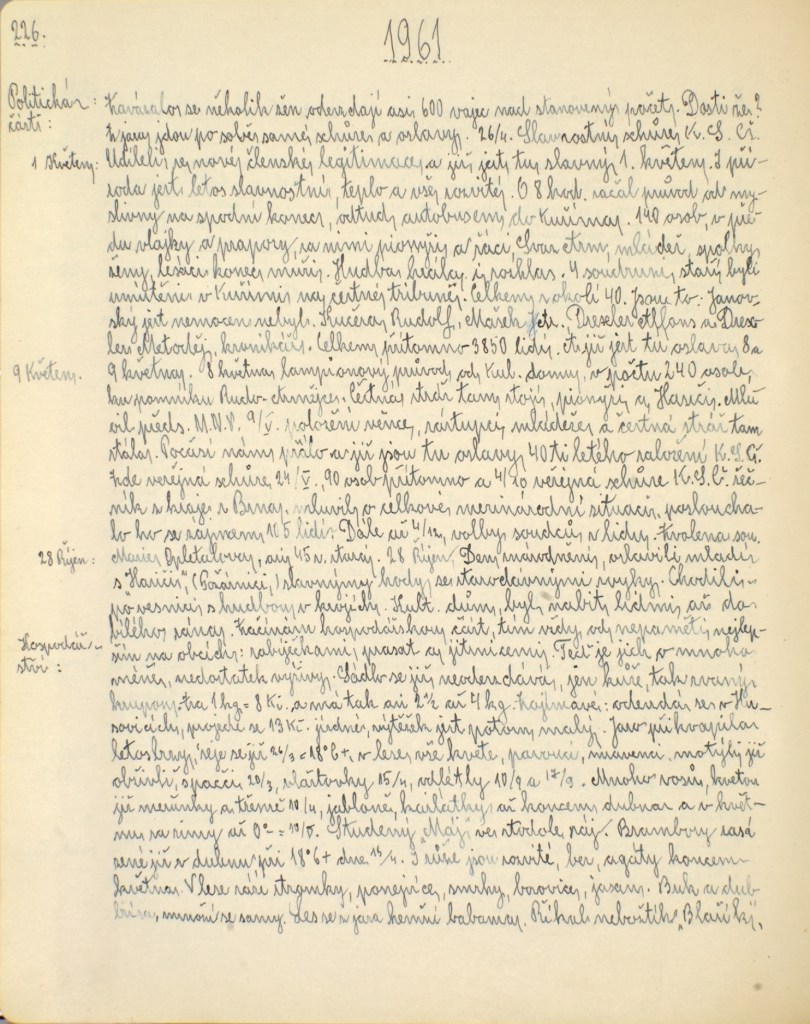 226.
1961
Politická
část:
Zavázalo se několik žen odevzdají asi 600 vajec nad stanovený počet. Dosti že?
Z jara jdou po sobě samé schůze a oslavy. 26/4. Slavnostní schůze K.S.Č.
1 Květen:
Udíleli se nové členské legitimace a již je tu slavný 1. květen. I pří-
roda jest letos slavnostní, teplo a vše rozvité. O 8 hod. začal průvod od my-
slivny na spodní konec, odtud autobusem do Kuřima. 140 osob, v pře-
du vlajky a prapory, za nimi pionýři a žáci, Svazarm, mládež, spolky
ženy, lesáci konec muži. Hudba hrála, i rozhlas. 4 soudruzi staří byli
umístěni v Kuřimi na čestné tribuně. Celkem z okolí 40. Jsou to: Janov-
ský jest nemocen nebyl. Kučera Rudolf, Mášek Petr., Drexler Alfons a Drex-
ler Metoděj, kronikář. Celkem přítomno 3850 lidí. A již jest tu oslava 8 a
9 Květen.
9 května. 8 května lampionový průvod od Kul. domu, v počtu 240 osob,
ku pomníku Rudo-armějce. Čestná stráž tam stojí, pionýři a Hasiči. Mlu
vil předs. M.N.V. 9/V. položení věnce, zástupci mládeže a čestná stráž tam
stála. Počasí nám přálo a již jsou tu oslavy 40ti letého založení K.S.Č.
Zde veřejná schůze 24/V., 90 osob přítomno a 4/10 veřejná schůze K.S.Č. řeč-
ník s kraje z Brna, mluvil o celkové mezinárodní situaci, posloucha-
lo ho se zájmem 105 lidí. Dále až 4/12, volby soudců z lidu. Zvolena sou.
28 Říjen:
Marie Opletalova, asi 45 r. stará. 28 Říjen, Den znárodnění, oslavili mladí
s "Hasiči", (Požárníci,) slavnými hody se starodávnými zvyky. Chodili
po vesnici s hudbou v krojích. Kult. dům, byl nabitý lidmi až do
bílého rána. Začínám hospodářskou část, tím vždy, od nepaměti nejlep-
Hospodář-
ství:
ším na obcích: zabíjačkami prasat a jitrnicemi. Teď je jich o mnoho
méně, nedostatek výživy. Sádlo se již neodevzdává, jen kůže, tak zvaný
krupon. Za 1 kg = 8 Kč. a má tak asi 2½ až 4 kg. Zajímavé: odevzdá se v Hu-
sovicích, projede se 13 Kč. jízdné, výtěžek jest potom malý. Jaro přikvapilo
letos brzy, seje se již 24/3 = 18°C+, v lese vše kvete, pavouci, mravenci, motýli již
obživli, špačci 20/3, vlaštovky 15/4, odlétly 10/9 a 17/9. Mnoho vosů, kvetou
již meruňky a třešně 10/4, jabloně, kaštany až koncem dubna a v květ-
nu, na zimy až 0° = 10/5. Studený "Máj" ve stodole, ráj. Brambory sasá
zené již v dubnu při 18°C+ dne 15/4. I růže jsou rozvité, bez, agáty koncem
května. V lese září stromky, ponejvíce, smrky, borovice, jasan. Buk a dub
bříza, množí se samy. Les se z jara hemží babama. Říkal nebožtík "Blažíků",